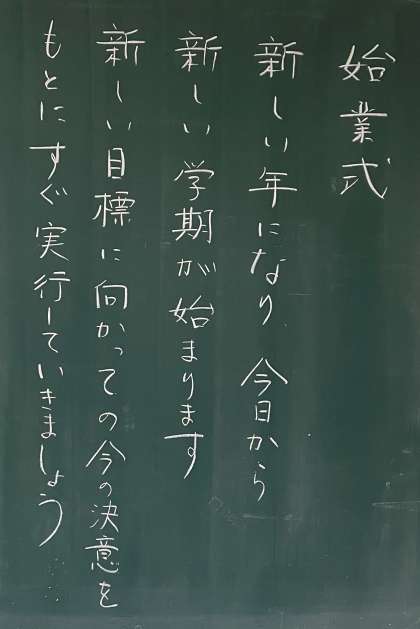 始業式
新しい年になり、今日から
新しい学期が始まります
新しい目標に向かっての今の決意を
もとにすぐ実行していきましょう